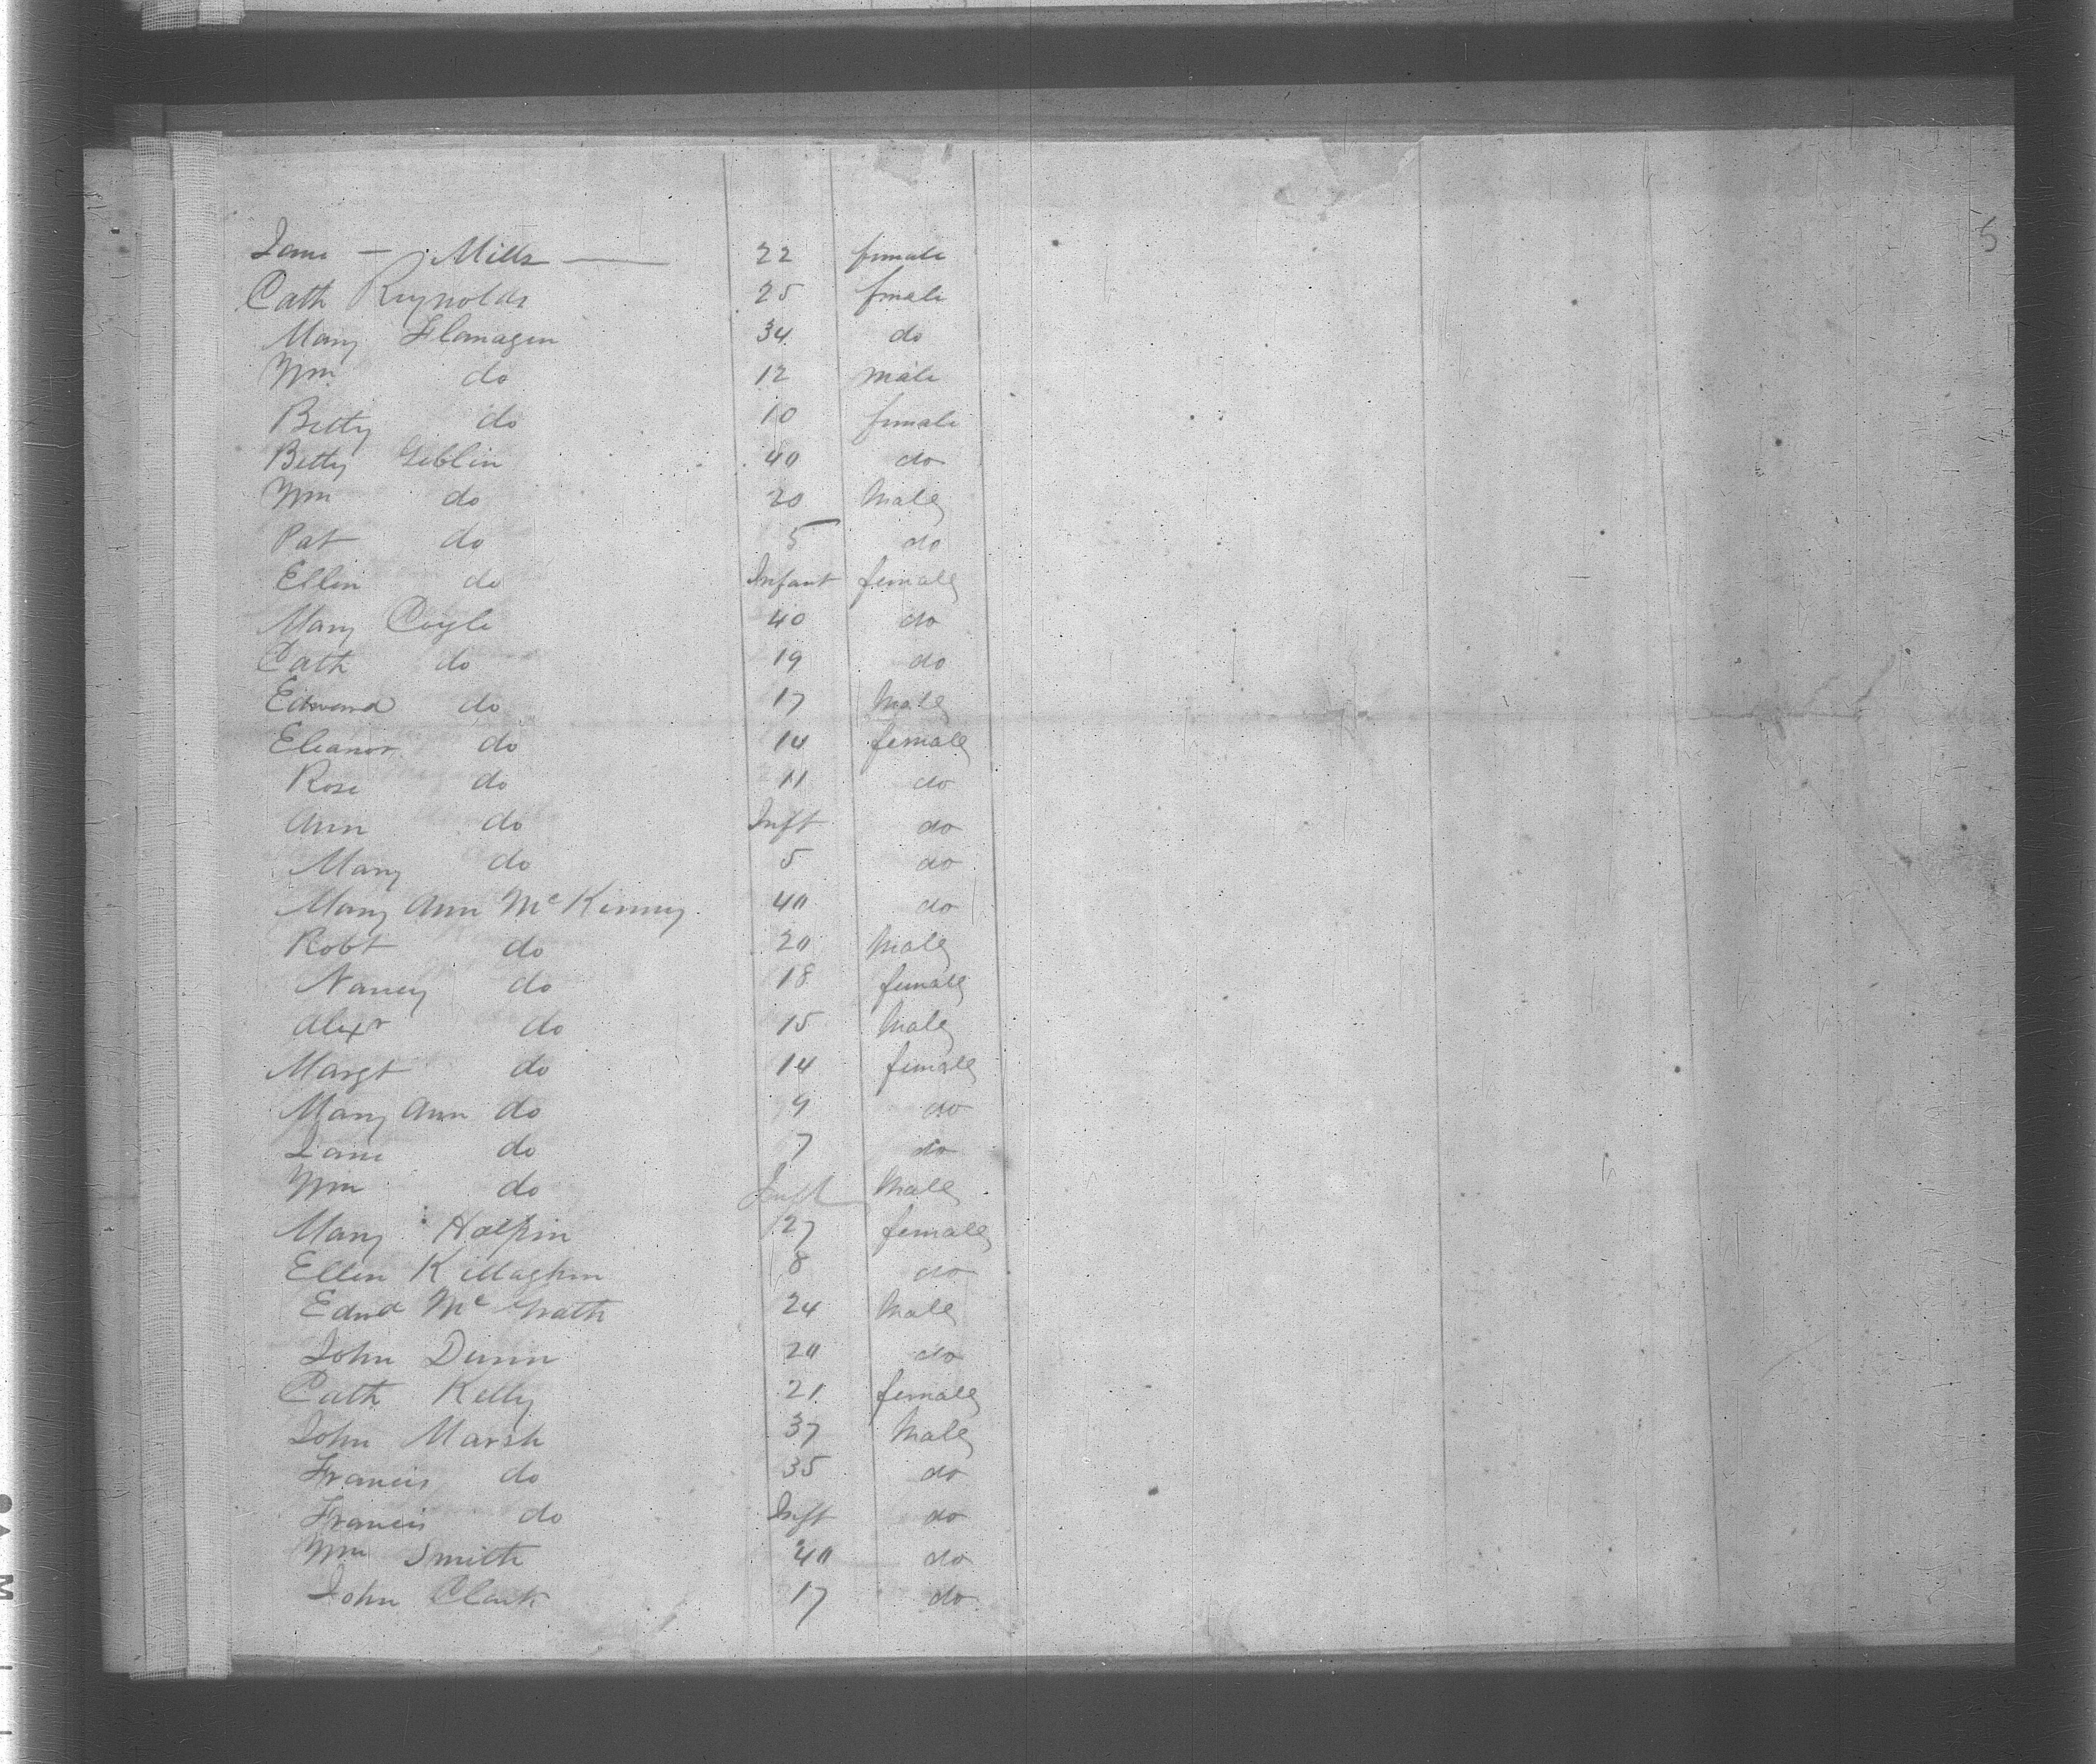 5
Jane — Mills — 22 female
Cath Reynolds 25 female
Mary Flanagen 34 do
Wm do 12 male
Betty do 10 female
Betty Giblin 40 do
Wm do 20 Male
Pat do 5 do
Ellin do Infant female
Mary Coyle 40 do
Cath do 19 do
Edward do 17 Male
Eleanor do 14 female
Rose do 11 do
Ann do Inft do
Mary do 5 do
Mary Ann McKinney 40 do
Robt do 20 Male
Nancy do 18 female
Alexr do 15 Male
Margt do 14 female
Mary Ann do 9 do
Jane do 7 do
Wm do Inft Male
Mary Halpin 27 female
Ellen Killaghen 8 do
Edwd McGrath 24 Male
John Dunn 20 do
Cath Kelly 21 female
John Marsh 37 Male
Francis do 35 do
Francis do Inft do
Wm Smith 40 do
John Clark 17 do